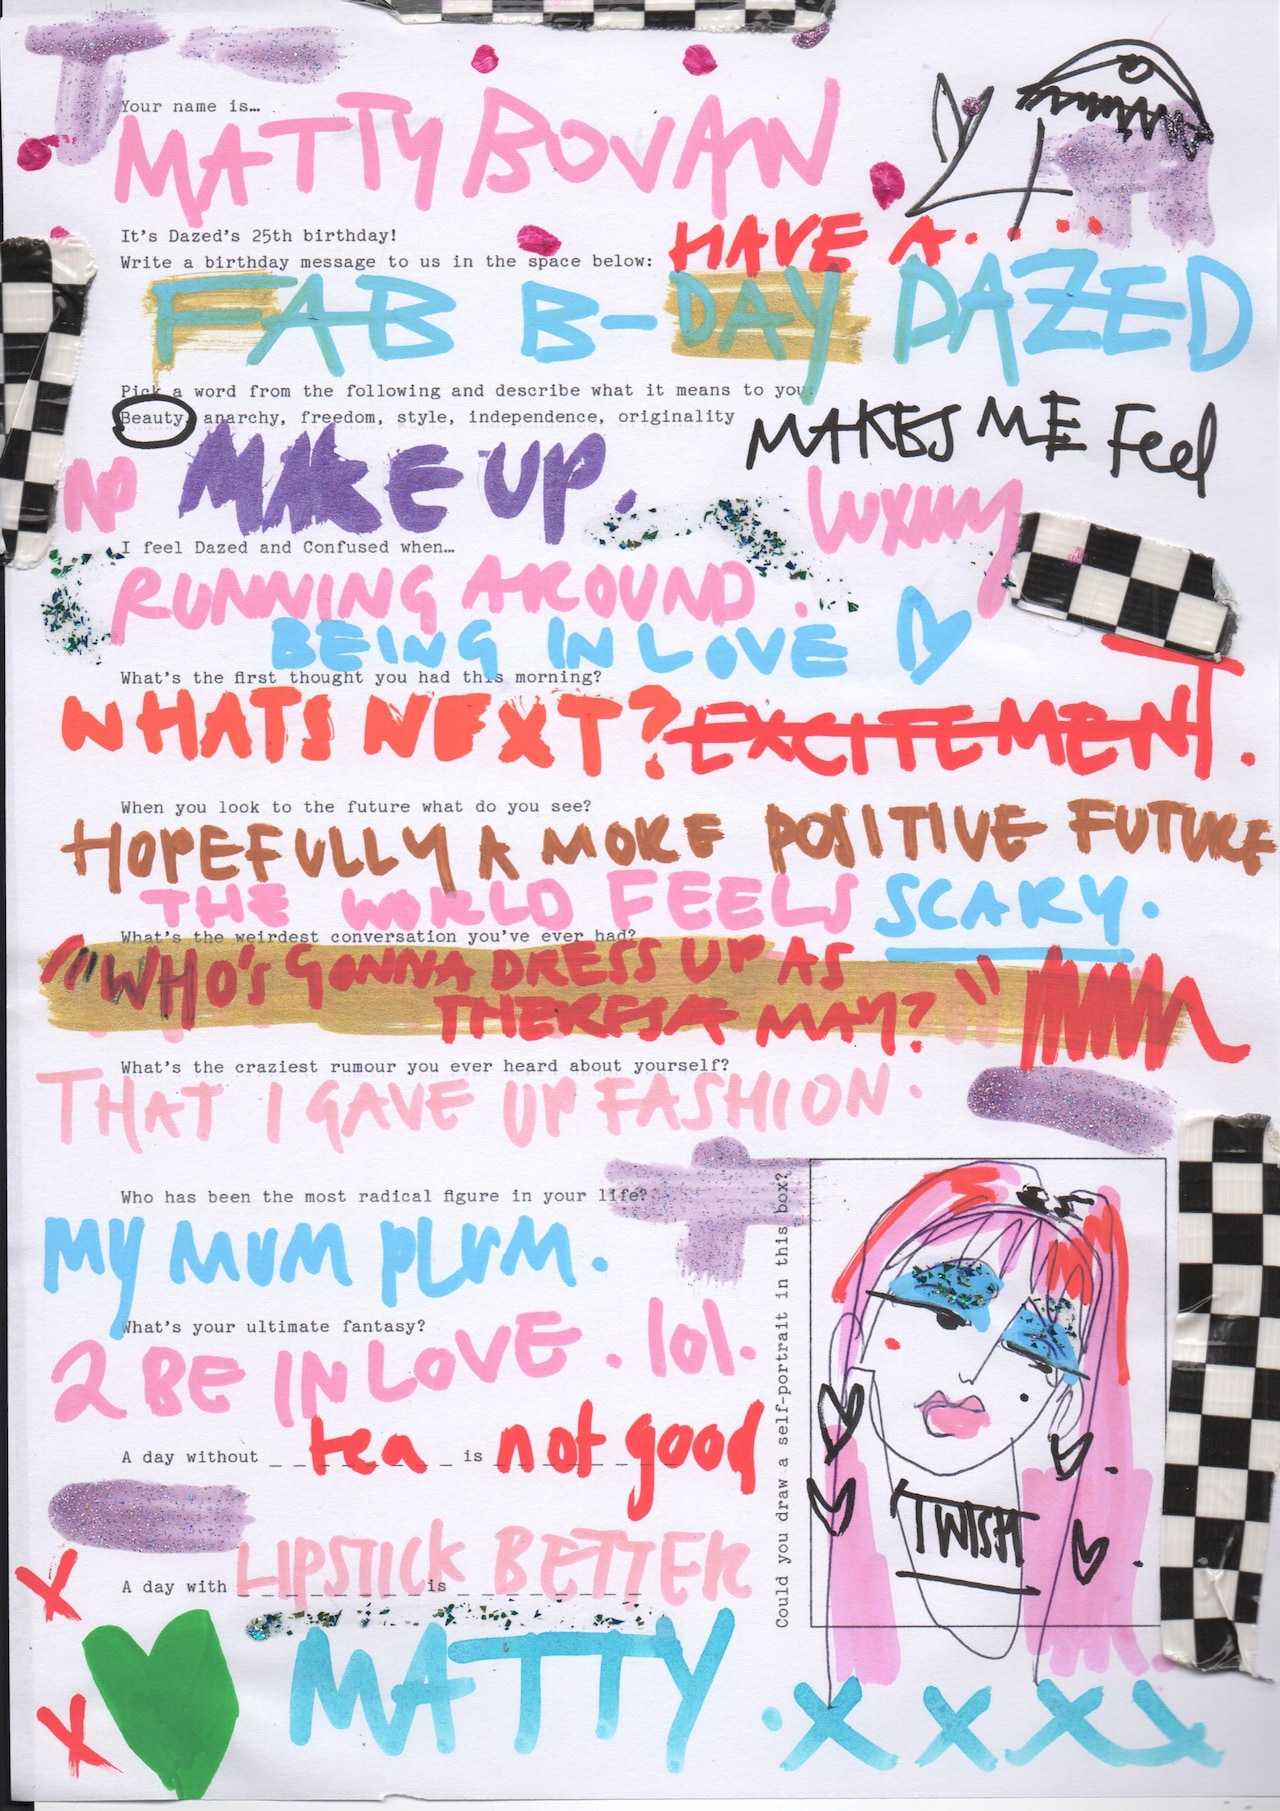 Your name is…
MATTY BOVAN
It's Dazed's 25th birthday!
Write a birthday message to us in the space below:
HAVE A....
FAB B-DAY DAZED
Pick a word from the following and describe what it means to you:
Beauty, anarchy, freedom, style, independence, originality
MAKE UP.
MAKES ME Feel
luxury
I feel Dazed and Confused when…
RUNNING AROUND.
BEING IN LOVE
What's the first thought you had this morning?
WHATS NEXT? EXCITEMENT.
When you look to the future what do you see?
HOPEFULLY A MORE POSITIVE FUTURE
THE WORLD FEELS SCARY.
What's the weirdest conversation you've ever had?
"WHO'S GONNA DRESS UP AS
THERESA MAY?"
What's the craziest rumour you ever heard about yourself?
THAT I GAVE UP FASHION.
Who has been the most radical figure in your life?
MY MUM PLUM.
What's your ultimate fantasy?
2 BE IN LOVE. lol.
A day without tea is not good
A day with LIPSTICK is BETTER
Could you draw a self-portrait in this box?
TWISH
MATTY.xxxx
x
x